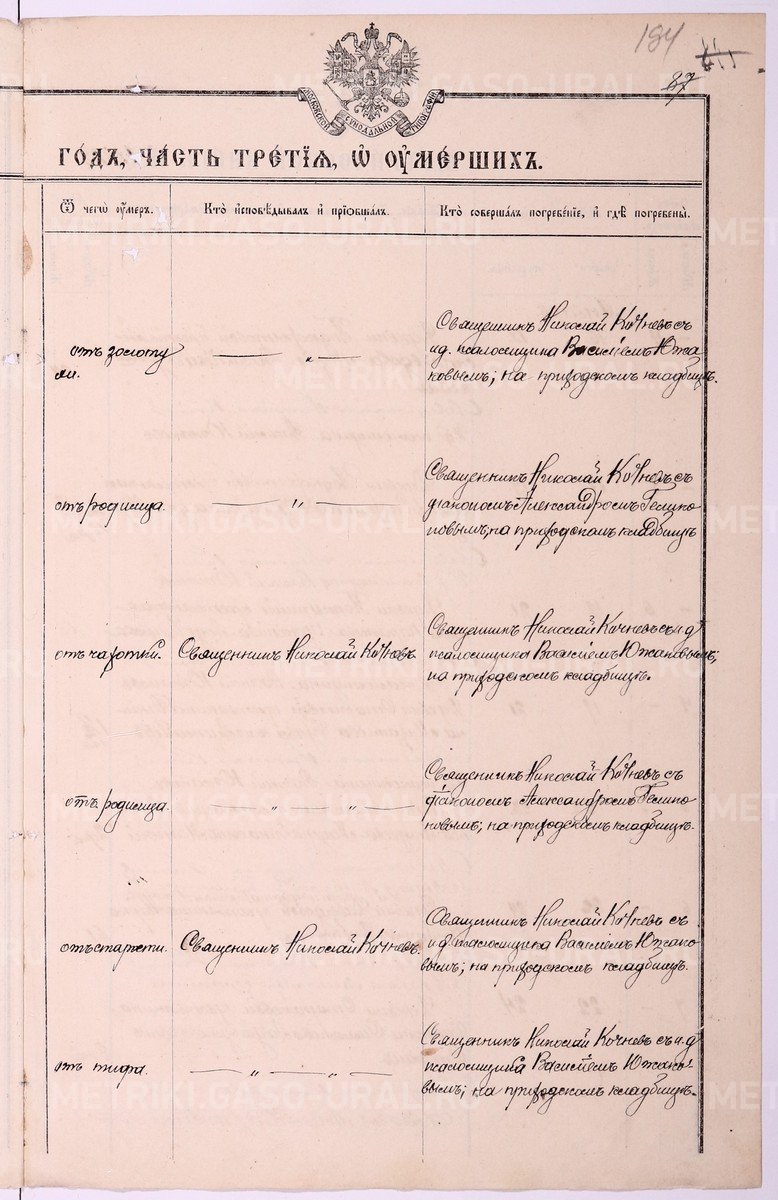 184
87
МОСКОВСКОЙ СѴНОДАЛЬНОЙ ТИПОГРАФІИ
ГО́ДЪ, ЧА́СТЬ ТРЕ́ТІѦ, Ѡ҆ ОУ҆МЕ́РШИХЪ.
Ѿ чегѡ̀ оу҆́меръ.
Кто̀ и҆сповѣ́дывалъ и҆ прїѡбща́лъ.
Кто̀ соверша́лъ погребе́нїе, и҆ гдѣ̀ погребены̀.
отъ золоту
ли.
— „ —
Священникъ Николай Кочневъ съ
и.д. псаломщика Василіемъ Южа
ковымъ; на приходскомъ кладбищѣ.
отъ родимца.
— „ —
Священникъ Николай Кочневъ съ
діакономъ Александромъ
повымъ; на приходскомъ кладбищѣ
отъ чахотки.
Священникъ Николай Кочневъ
Священникъ Николай Кочневъ съ и.д.
псаломщика Василіемъ Южаковымъ;
на приходскомъ кладбищѣ.
отъ родимца.
— „ — „ —
Священникъ Николай Кочневъ съ
діакономъ Александромъ
новымъ; на приходскомъ кладбищѣ.
отъ старости.
Священникъ Николай Кочневъ.
Священникъ Николай Кочневъ съ
и.д. псаломщика Василіемъ Южако
вымъ; на приходскомъ кладбищѣ.
отъ тифа.
— „ — „ —
Священникъ Николай Кочневъ съ и.д.
псаломщика Василіемъ Южако
вымъ; на приходскомъ кладбищѣ.